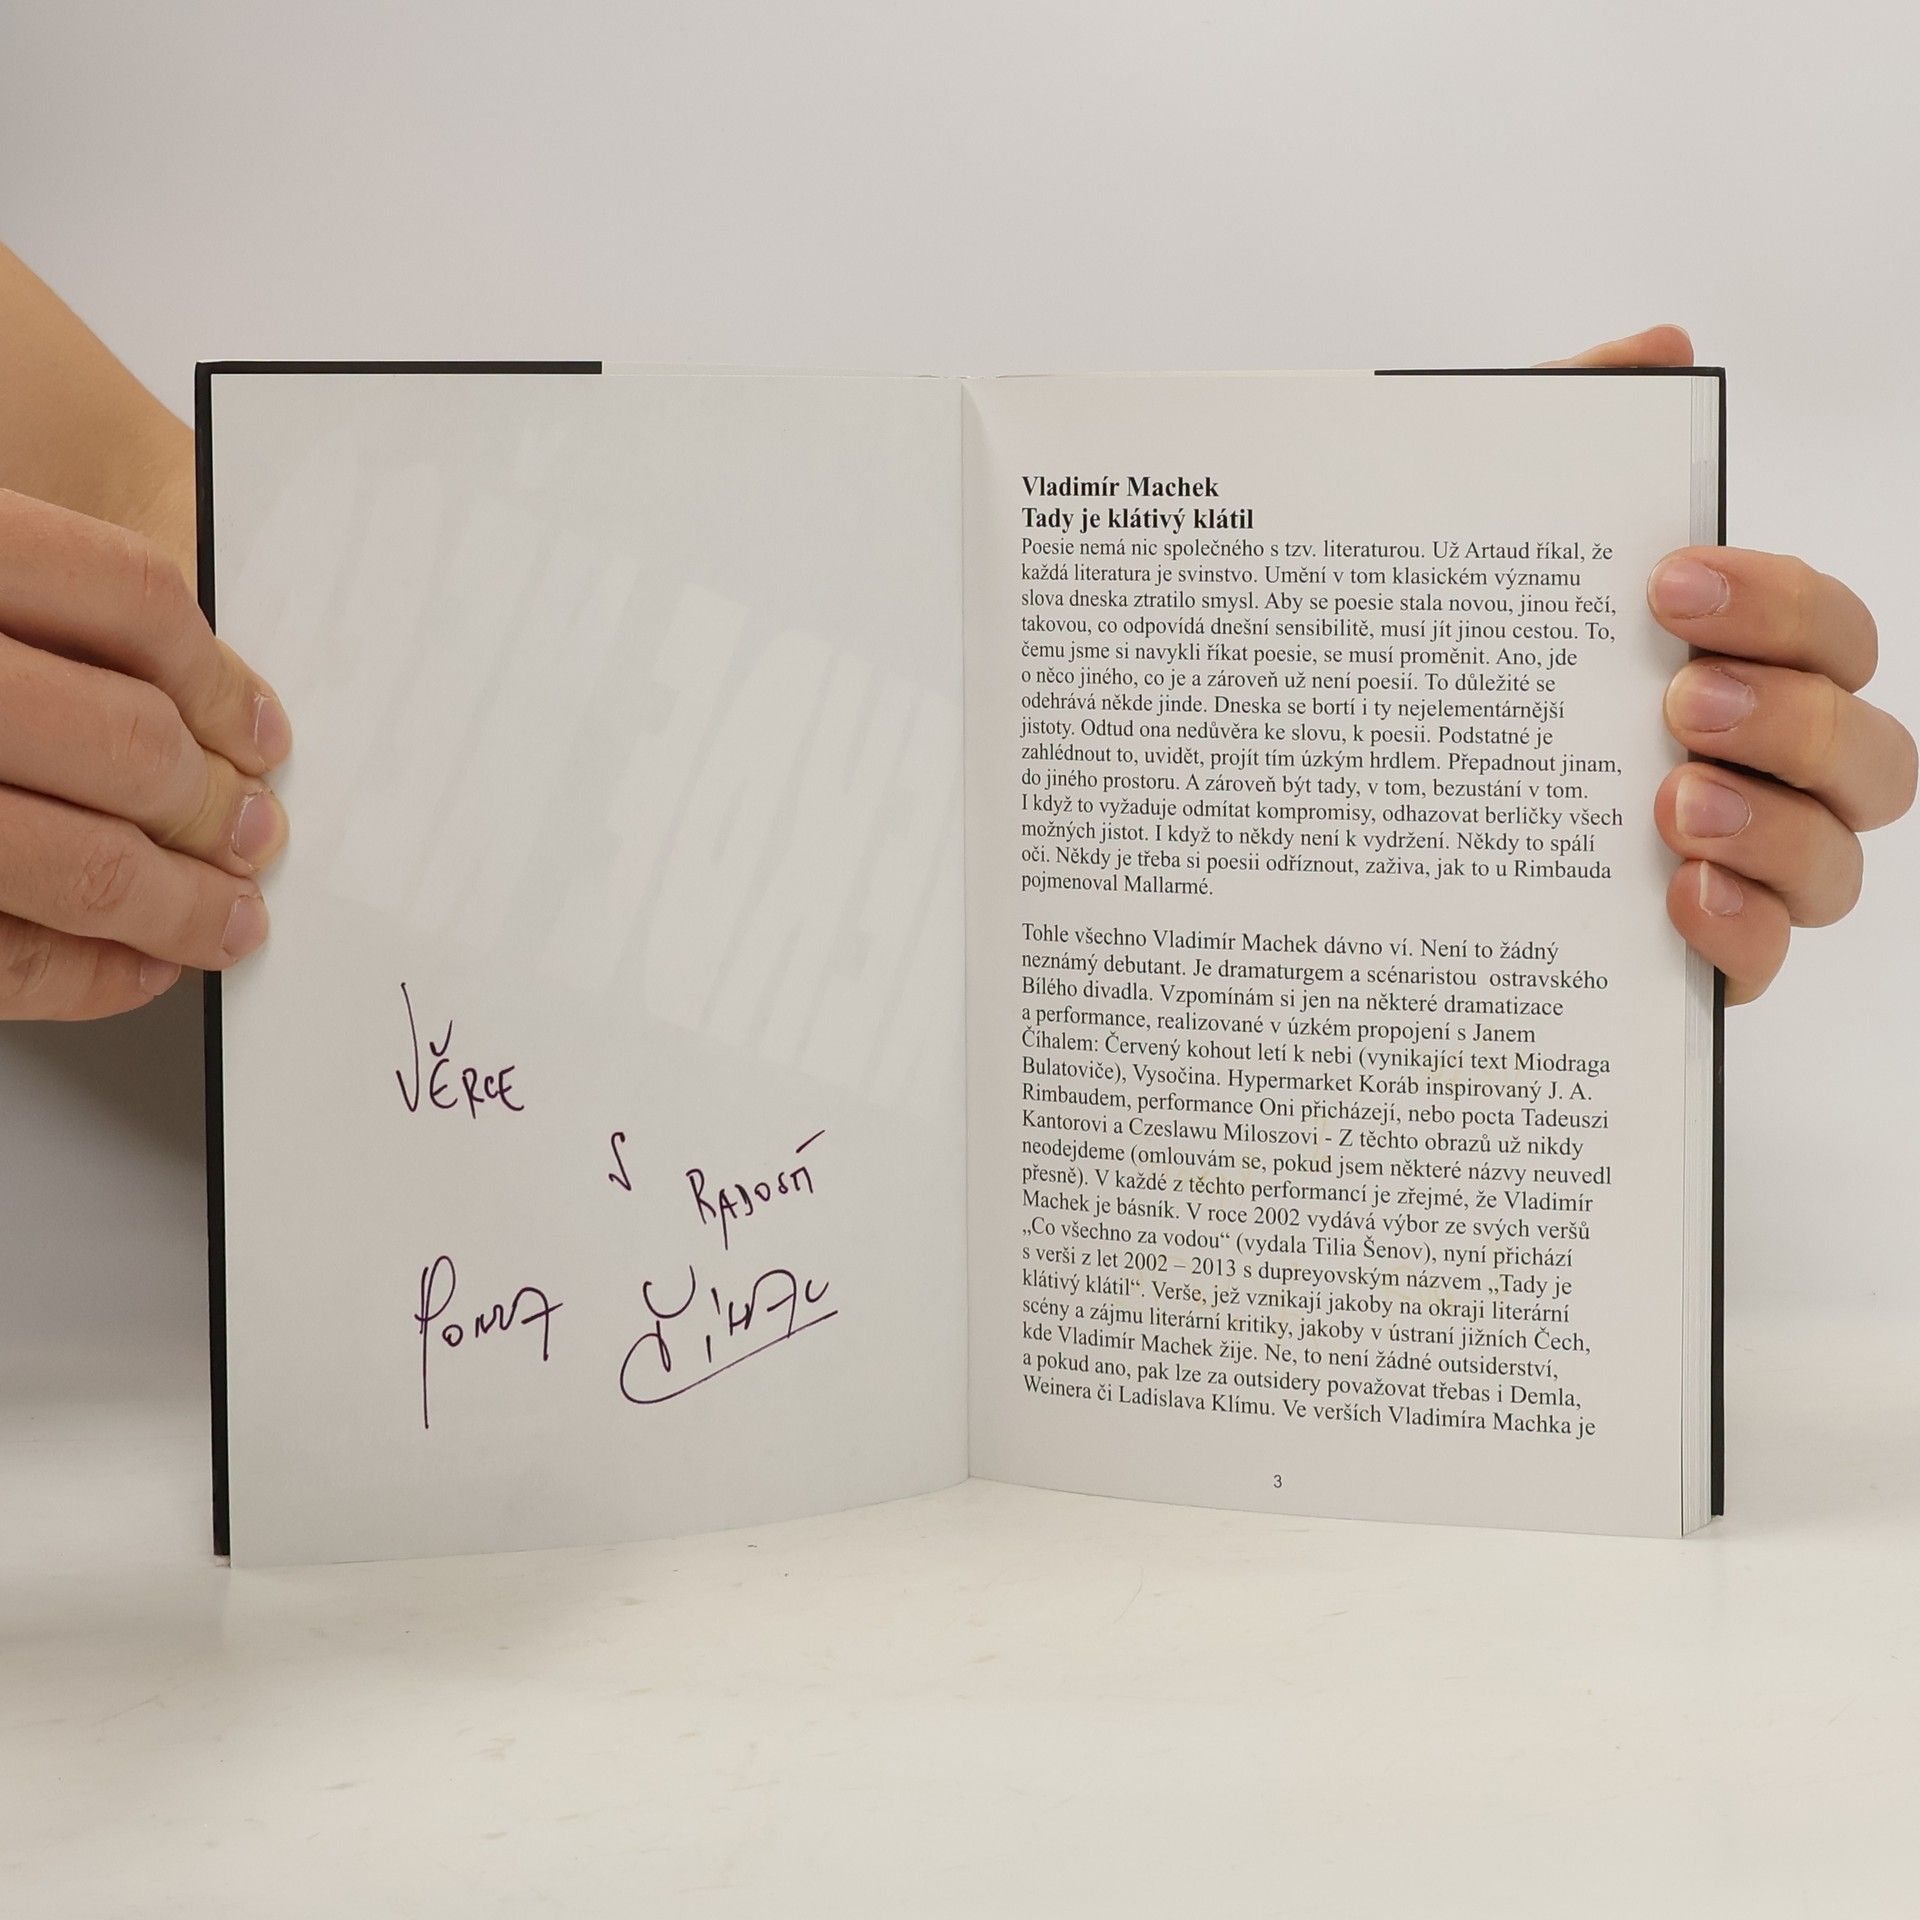 VĚRCE
S RADOSTÍ
HONZA ČÍHAL
Vladimír Machek
Tady je klátivý klátil
Poesie nemá nic společného s tzv. literaturou. Už Artaud říkal, že
každá literatura je svinstvo. Umění v tom klasickém významu
slova dneska ztratilo smysl. Aby se poesie stala novou, jinou řečí,
takovou, co odpovídá dnešní sensibilitě, musí jít jinou cestou. To,
čemu jsme si navykli říkat poesie, se musí proměnit. Ano, jde
o něco jiného, co je a zároveň už není poesií. To důležité se
odehrává někde jinde. Dneska se bortí i ty nejelementárnější
jistoty. Odtud ona nedůvěra ke slovu, k poesii. Podstatné je
zahlédnout to, uvidět, projít tím úzkým hrdlem. Přepadnout jinam,
do jiného prostoru. A zároveň být tady, v tom, bezustání v tom.
I když to vyžaduje odmítat kompromisy, odhazovat berličky všech
možných jistot. I když to někdy není k vydržení. Někdy to spálí
oči. Někdy je třeba si poesii odříznout, zaživa, jak to u Rimbauda
pojmenoval Mallarmé.
Tohle všechno Vladimír Machek dávno ví. Není to žádný
neznámý debutant. Je dramaturgem a scénaristou ostravského
Bílého divadla. Vzpomínám si jen na některé dramatizace
a performance, realizované v úzkém propojení s Janem
Číhalem: Červený kohout letí k nebi (vynikající text Miodraga
Bulatoviče), Vysočina. Hypermarket Koráb inspirovaný J. A.
Rimbaudem, performance Oni přicházejí, nebo pocta Tadeuszi
Kantorovi a Czeslawu Miloszovi - Z těchto obrazů už nikdy
neodejdeme (omlouvám se, pokud jsem některé názvy neuvedl
přesně). V každé z těchto performancí je zřejmé, že Vladimír
Machek je básník. V roce 2002 vydává výbor ze svých veršů
„Co všechno za vodou“ (vydala Tilia Šenov), nyní přichází
s verši z let 2002 – 2013 s dupreyovským názvem „Tady je
klátivý klátil“. Verše, jež vznikají jakoby na okraji literární
scény a zájmu literární kritiky, jakoby v ústraní jižních Čech,
kde Vladimír Machek žije. Ne, to není žádné outsiderství,
a pokud ano, pak lze za outsidery považovat třebas i Demla,
Weinera či Ladislava Klímu. Ve verších Vladimíra Machka je
3